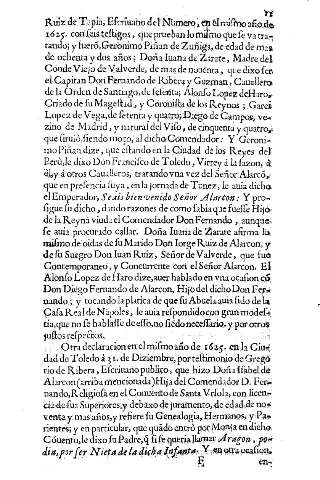 Ruiz de Tapia, Escriuano del Numero, en el mismo año de
1625. con seis testigos, que prueban lo mismo que se va tra-
tando; y fueró, Geronimo Piñan de Zuñiga, de edad de mas
de ochenta y dos años; Doña Iuana de Zarate, Madre del
Conde Viejo de Valverde, de mas de nouenta, que dixo ser
el Capitan Don Fernando de Ribera y Guzman, Cauallero
de la Orden de Santiago, de setenta; Alonso Lopez de Haro,
Criado de su Magestad, y Coronista de los Reynos; Garci
Lopez de Vega, de setenta y quatro; Diego de Campos, ve-
zino de Madrid, y natural del Viso, de cinquenta y quatro,
que siruió, siendo moço, al dicho Comendador: Y Geroni-
mo Piñan dize, que estando en la Ciudad de los Reyes del
Perù, le dixo Don Francisco de Toledo, Virrey à la sazon, à
èl, y à otros Caualleros, tratando vna vez del Señor Alarcó,
que en presencia suya, en la jornada de Tunez, le auia dicho
el Emperador, Seais bien venido Señor Alarcon: Y pro-
sigue su dicho, dando razones de como sabia que fuesse Hijo
de la Reyna viuda el Comendador Don Fernando, aunque
se auia procurado callar. Doña Iuana de Zarate afirma la
mismo de oidas de su Marido Don Iorge Ruiz de Alarcon, y
de su Suegro Don Iuan Ruiz, Señor de Valverde, que fue
Contemporaneo, y Concurrente con el Señor Alarcon. El
Alonso Lopez de Haro dize, auer hablado en vna ocasion có
Don Diego Fernando de Alarcon, Hijo del dicho Don Fer-
nando; y tocando la platica de que su Abuela auia sido de la
Casa Real de Napoles, le auia respondido con gran modes-
tia, que no se hablasse de esso, no siédo necessario, y por otros
justos respectos.
Otra declaracion en el mismo año de 1625. en la Ciu-
dad de Toledo à 31. de Diziembre, por testimonio de Grego
rio de Ribera, Escriuano publico, que hizo Doña Isabel de
Alarcon (arriba mencionada) Hija del Comendador D. Fer-
nando, Religiosa en el Conuento de Santa Vrsola, con licen-
cia de sus Superiores, y debaxo de juramento, de edad de no-
venta y mas años, y refiere su Genealogia, Hermanos, y Pa-
rientes; y en particular, que quádo entrò por Monja en dicho
Cóuento, le dixo su Padre, q̃ si se queria llamar Aragon, po-
dia, por ser Nieta de la dicha Infanta. Y en otra ocasion,
E en-